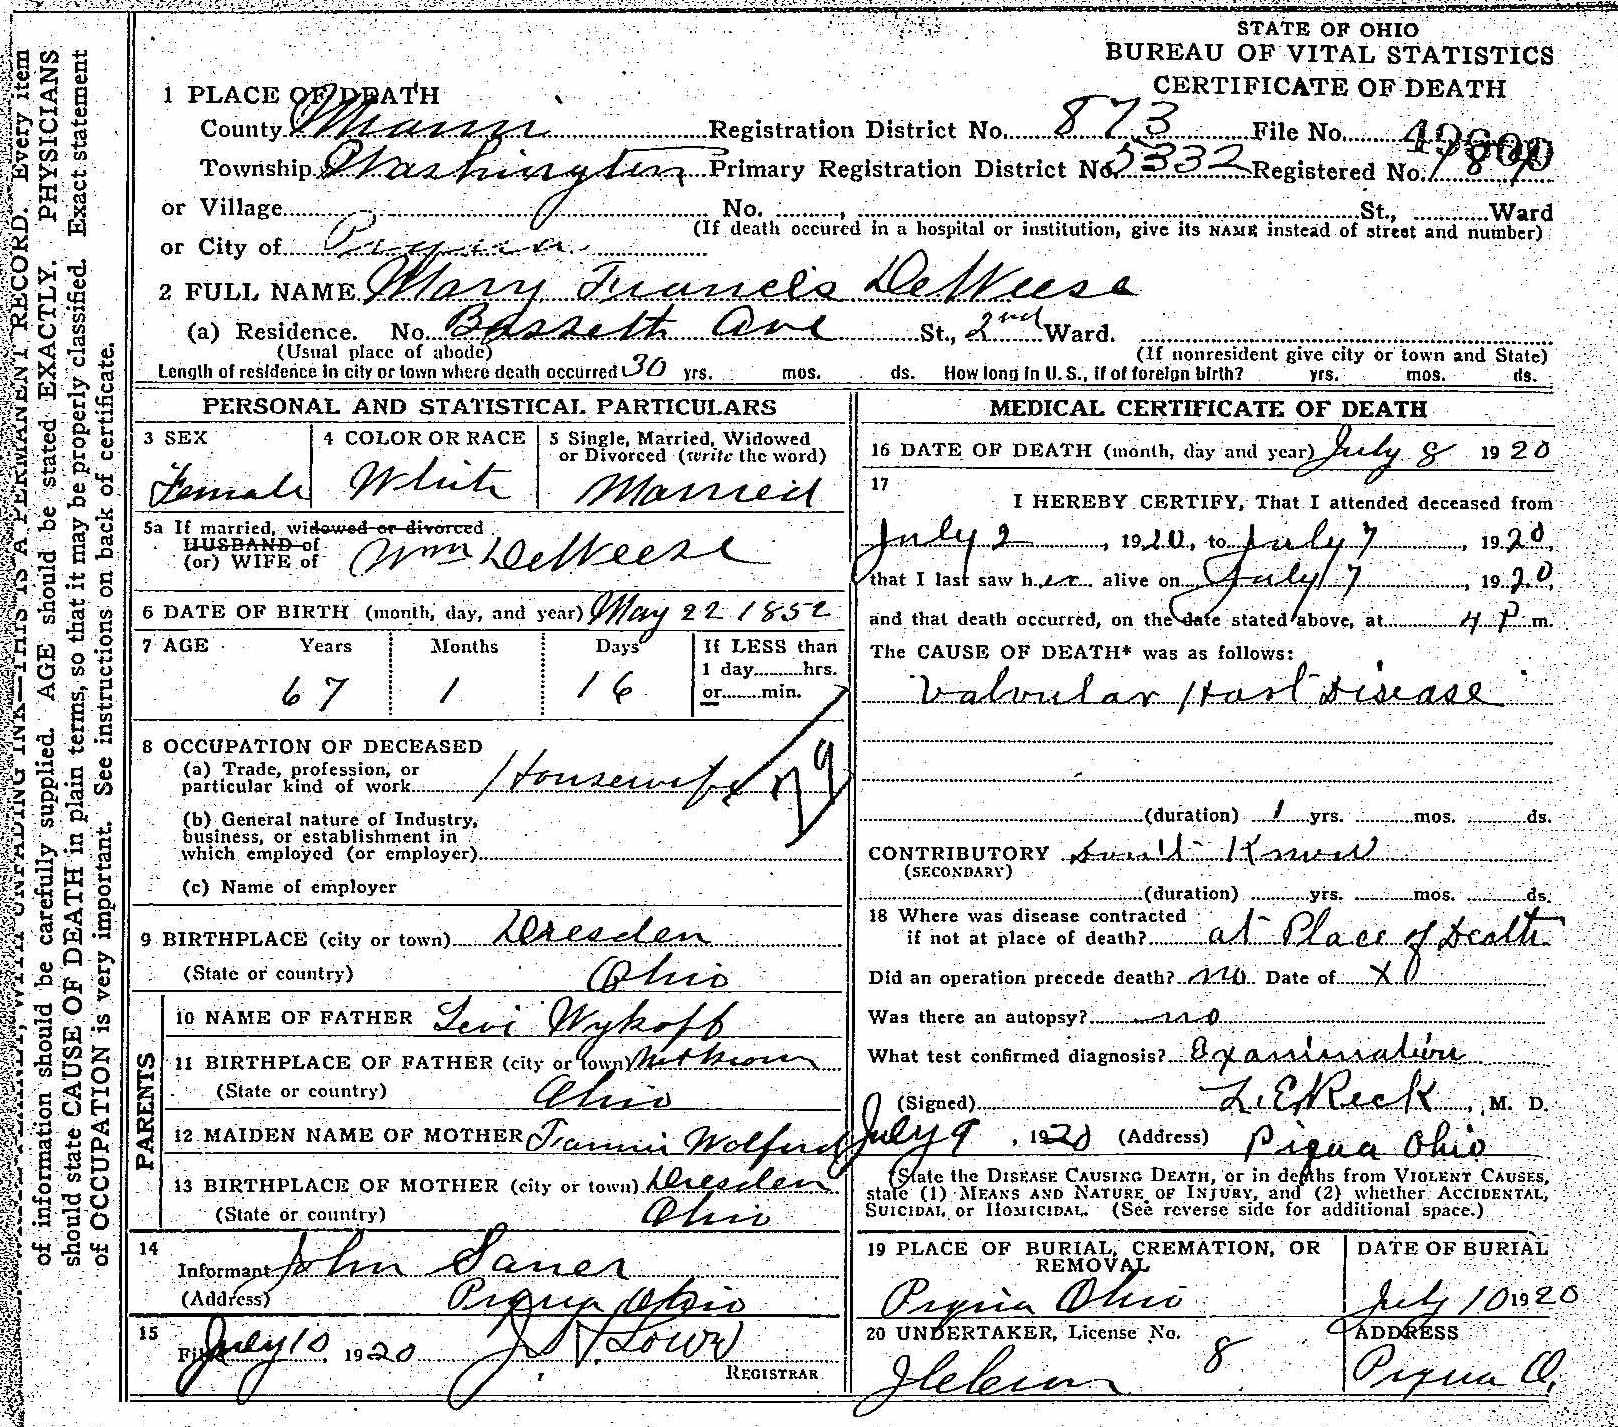 STATE OF OHIO
BUREAU OF VITAL STATISTICS
CERTIFICATE OF DEATH
1 PLACE OF DEATH
County Miami Registration District No. 873 File No.
Township Washington Primary Registration District No. 5332 Registered No.
or Village No. , St., Ward
(If death occured in a hospital or institution, give its NAME instead of street and number)
or City of Piqua
2 FULL NAME Mary Francis DeWeese
(a) Residence. No. Bassett Ave St., 2nd Ward.
(Usual place of abode) (If nonresident give city or town and State)
Length of residence in city or town where death occurred 30 yrs. mos. ds. How long in U. S., if of foreign birth? yrs. mos. ds.
PERSONAL AND STATISTICAL PARTICULARS
3 SEX
Female
4 COLOR OR RACE
White
5 Single, Married, Widowed
or Divorced (write the word)
Married
5a If married, widowed or divorced
HUSBAND of
(or) WIFE of Wm DeWeese
6 DATE OF BIRTH (month, day, and year) May 22 1852
7 AGE Years Months Days If LESS than
1 day hrs.
or min.
67 1 16
8 OCCUPATION OF DECEASED
(a) Trade, profession, or
particular kind of work Housewife
79
(b) General nature of Industry,
business, or establishment in
which employed (or employer)
(c) Name of employer
9 BIRTHPLACE (city or town) Dresden
(State or country) Ohio
PARENTS
10 NAME OF FATHER Levi Wykoff
11 BIRTHPLACE OF FATHER (city or town)
(State or country) Ohio
12 MAIDEN NAME OF MOTHER Wolford
13 BIRTHPLACE OF MOTHER (city or town) Dresden
(State or country) Ohio
14
Informant John Saner
(Address) Piqua Ohio
15
Filed July 10 1920 Lowe
REGISTRAR
MEDICAL CERTIFICATE OF DEATH
16 DATE OF DEATH (month, day and year) July 8 1920
17
I HEREBY CERTIFY, That I attended deceased from
July 2 , 1920, to July 7 , 1920,
that I last saw her alive on July 7 , 1920,
and that death occurred, on the date stated above, at 4 P m.
The CAUSE OF DEATH* was as follows:
Valvular Hart Disease
(duration) 1 yrs. mos. ds.
CONTRIBUTORY Don't Know
(SECONDARY)
(duration) yrs. mos. ds.
18 Where was disease contracted
if not at place of death? at Place of Death
Did an operation precede death? no Date of X
Was there an autopsy? no
What test confirmed diagnosis? Examination
(Signed) L.E. Reck , M. D.
July 9 , 1920 (Address) Piqua Ohio
(State the DISEASE CAUSING DEATH, or in deaths from VIOLENT CAUSES,
state (1) MEANS AND NATURE OF INJURY, and (2) whether ACCIDENTAL,
SUICIDAL or HOMICIDAL. (See reverse side for additional space.)
19 PLACE OF BURIAL, CREMATION, OR
REMOVAL
Piqua Ohio
DATE OF BURIAL
July 10 1920
20 UNDERTAKER, License No.
8
ADDRESS
Piqua O.
THIS IS A PERMANENT RECORD. Every item
of information should be carefully supplied. AGE should be stated EXACTLY. PHYSICIANS
should state CAUSE OF DEATH in plain terms, so that it may be properly classified. Exact statement
of OCCUPATION is very important. See instructions on back of certificate.